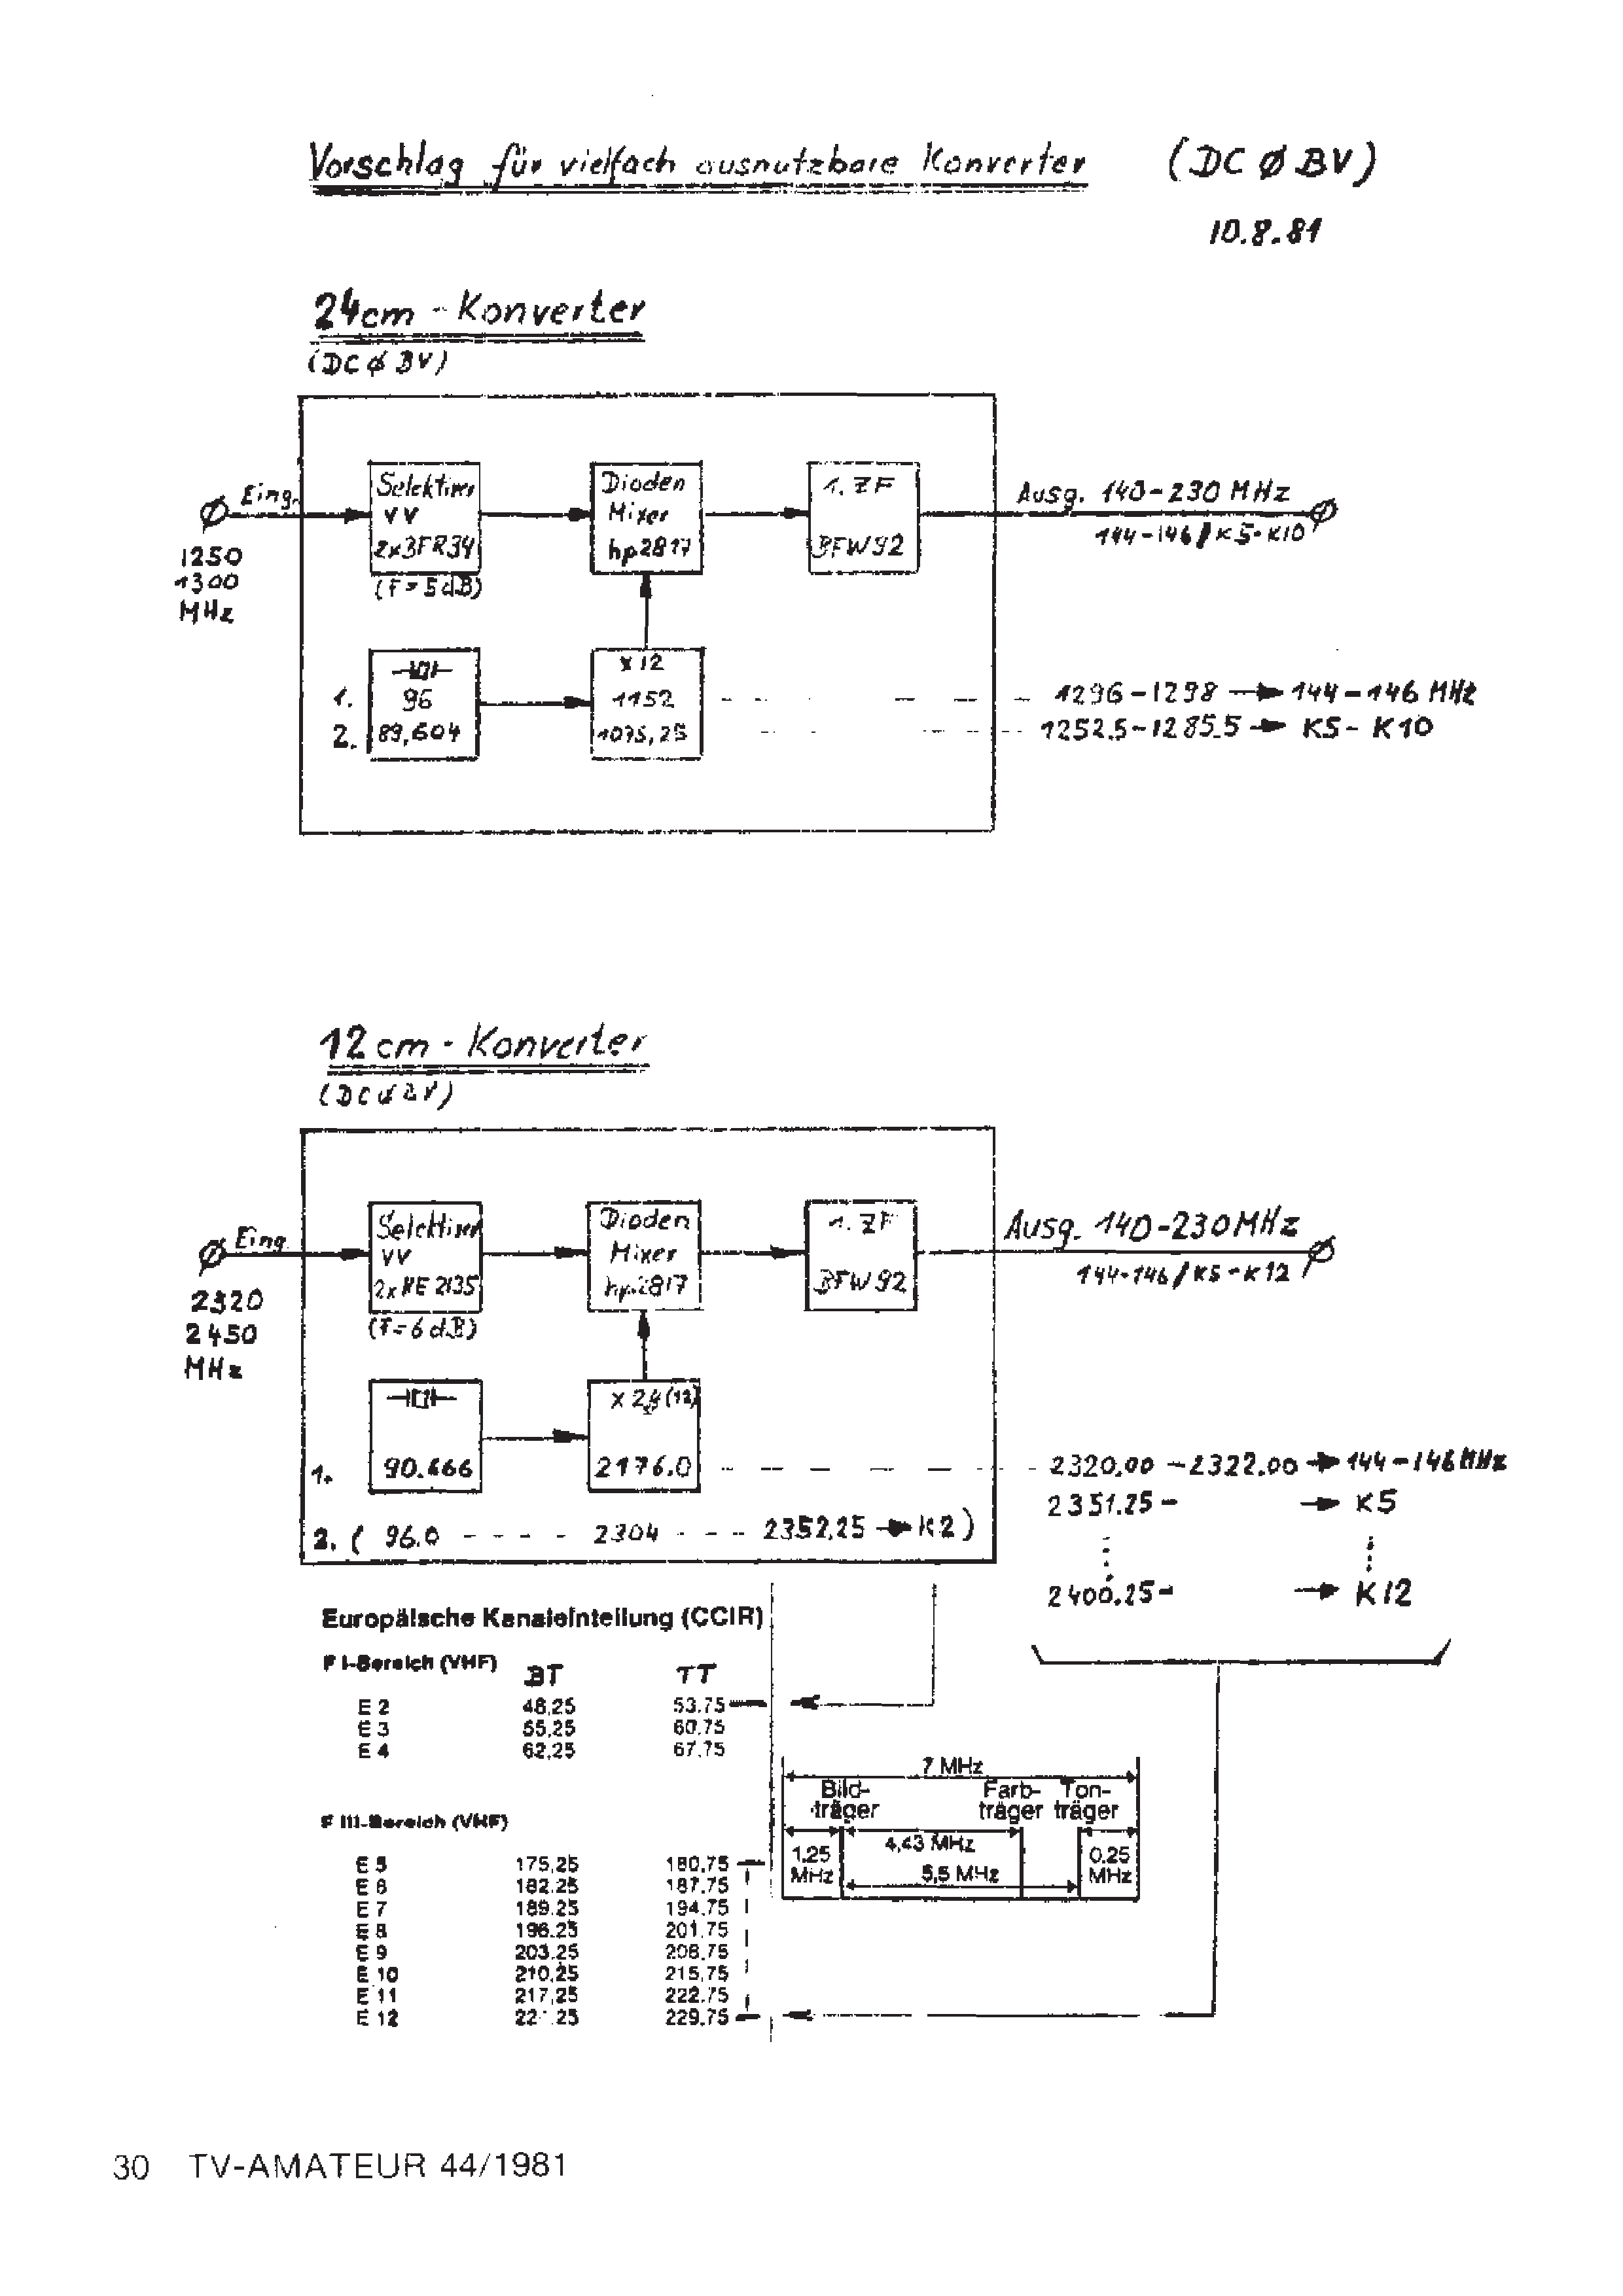 Vorschlag für vielfach ausnutzbare Konverter (DCØBV)
10.8.81
24cm - Konverter
(DCØBV)
Eing.
1250
1300
MHz
Selektiver
VV
2x3FR34
(F=5dB)
Dioden
Mixer
hp2817
1. ZF
BFW92
Ausg. 140-230 MHz
144-146/K5-K10
1. 96
2. 89,604
x12
1152
1075,25
1296-1298 → 144-146 MHz
1252.5-1285.5 → K5- K10
12cm - Konverter
(DCØBV)
Eing.
2320
2450
MHz
Selektiver
VV
2xNE2135
(F=6dB)
Dioden
Mixer
hp.2817
1. ZF
BFW92
Ausg. 140-230MHz
144-146/K5-K12
1. 90.666
x24(12)
2176.0
2320.00 -2322.00 → 144-146MHz
2351.25- → K5
2400.25- → K12
2. ( 96.0 - - - - 2304 - - - 2352,25 → K2 )
Europäische Kanaleinteilung (CCIR)
F I-Bereich (VHF) BT TT
E 2 48,25 53.75
E 3 55,25 60.75
E 4 62,25 67,75
7 MHz
Bild-
träger
Farb-
träger
Ton-
träger
1.25
MHz
4,43 MHz
5,5 MHz
0.25
MHz
F III-Bereich (VHF)
E 5 175,25 180,75
E 6 182.25 187.75
E 7 189.25 194.75
E 8 196.25 201.75
E 9 203.25 208.75
E 10 210,25 215,75
E 11 217,25 222.75
E 12 229.75
30 TV-AMATEUR 44/1981